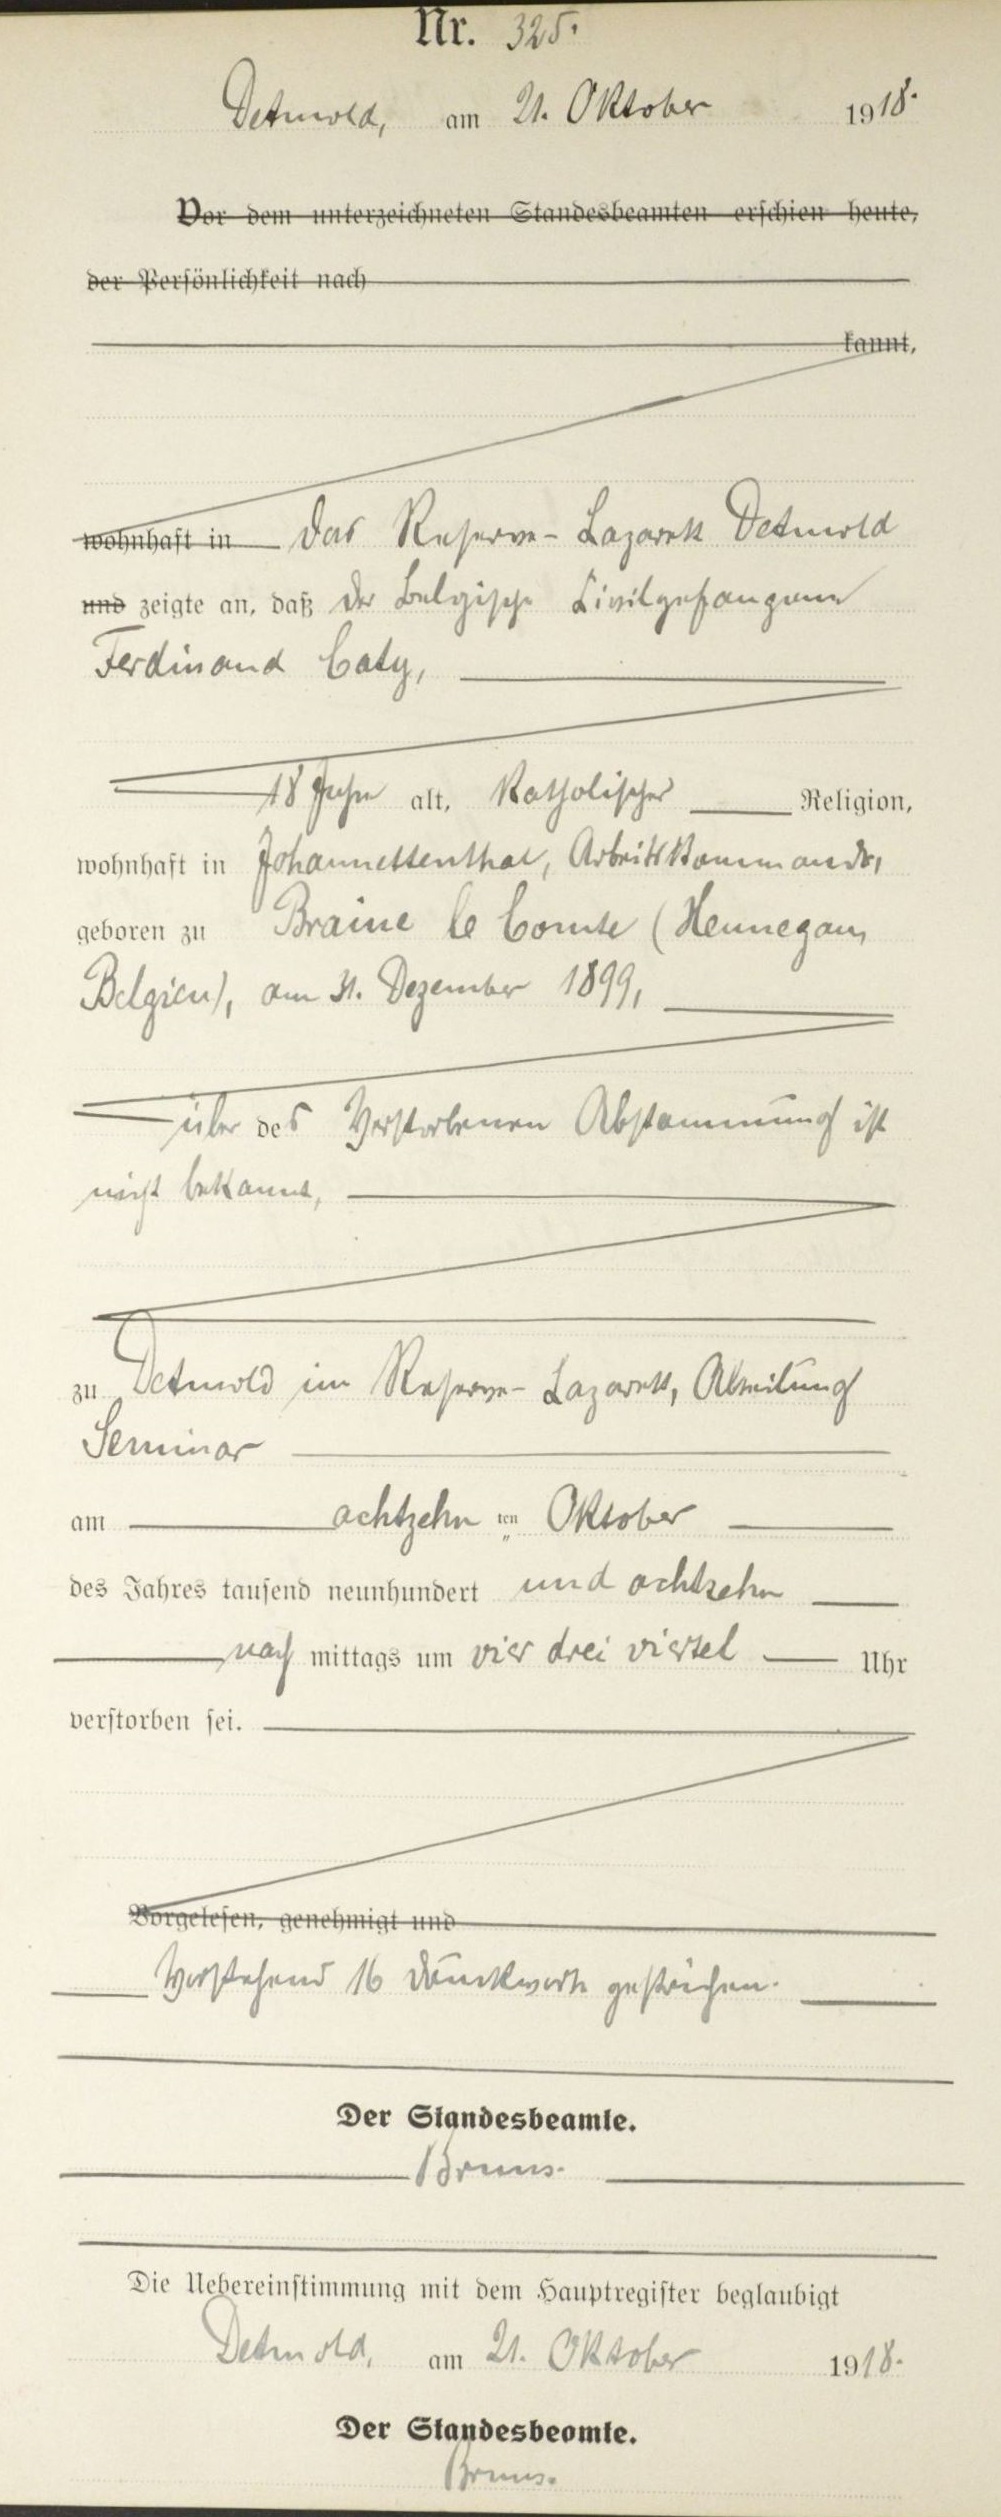 Nr. 325.
Detmold, am 21. Oktober 1918.
Vor dem unterzeichneten Standesbeamten erschien heute,
der Persönlichkeit nach
kannt,
wohnhaft in Das Reserve-Lazarett Detmold
und zeigte an, daß der Belgische Civilgefangene
Ferdinand Caty,
18 Jahre alt, Katholischer Religion,
wohnhaft in Johannettenthal, Arbeitskommando,
geboren zu Braine le Comte (Hennegau,
Belgien), am 31. Dezember 1899,
über des Verstorbenen Abstammung ist
nicht bekannt,
zu Detmold im Reserve-Lazarett, Abteilung
Seminar
am achtzehn ten Oktober
des Jahres tausend neunhundert und achtzehn
nach mittags um vier drei viertel Uhr
verstorben sei.
Vorgelesen, genehmigt und
Vorstehend 16 Druckworte gestrichen.
Der Standesbeamte.
Bruns.
Die Uebereinstimmung mit dem Hauptregister beglaubigt
Detmold, am 21. Oktober 1918.
Der Standesbeamte.
Bruns.